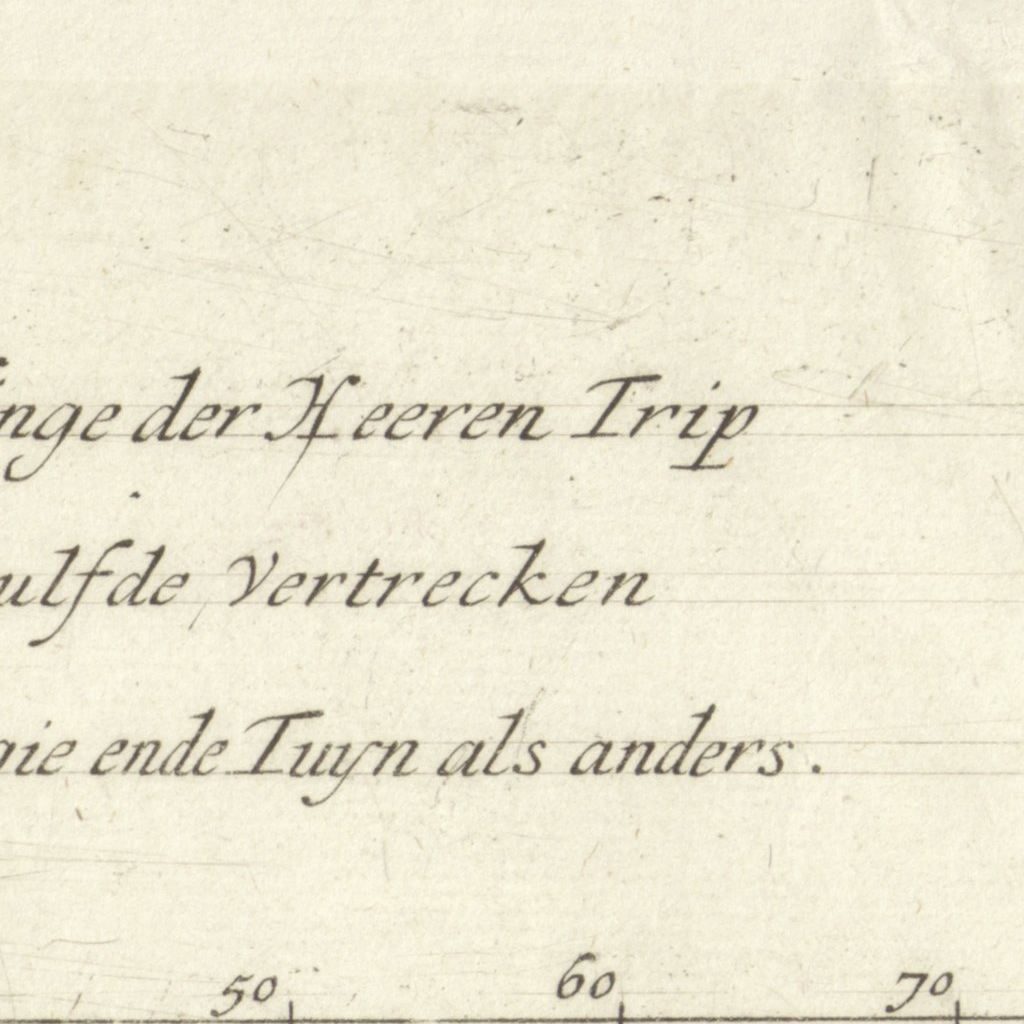 inge der Heeren Trip
ulfde Vertrecken
aie ende Tuyn als anders.
50 60 70